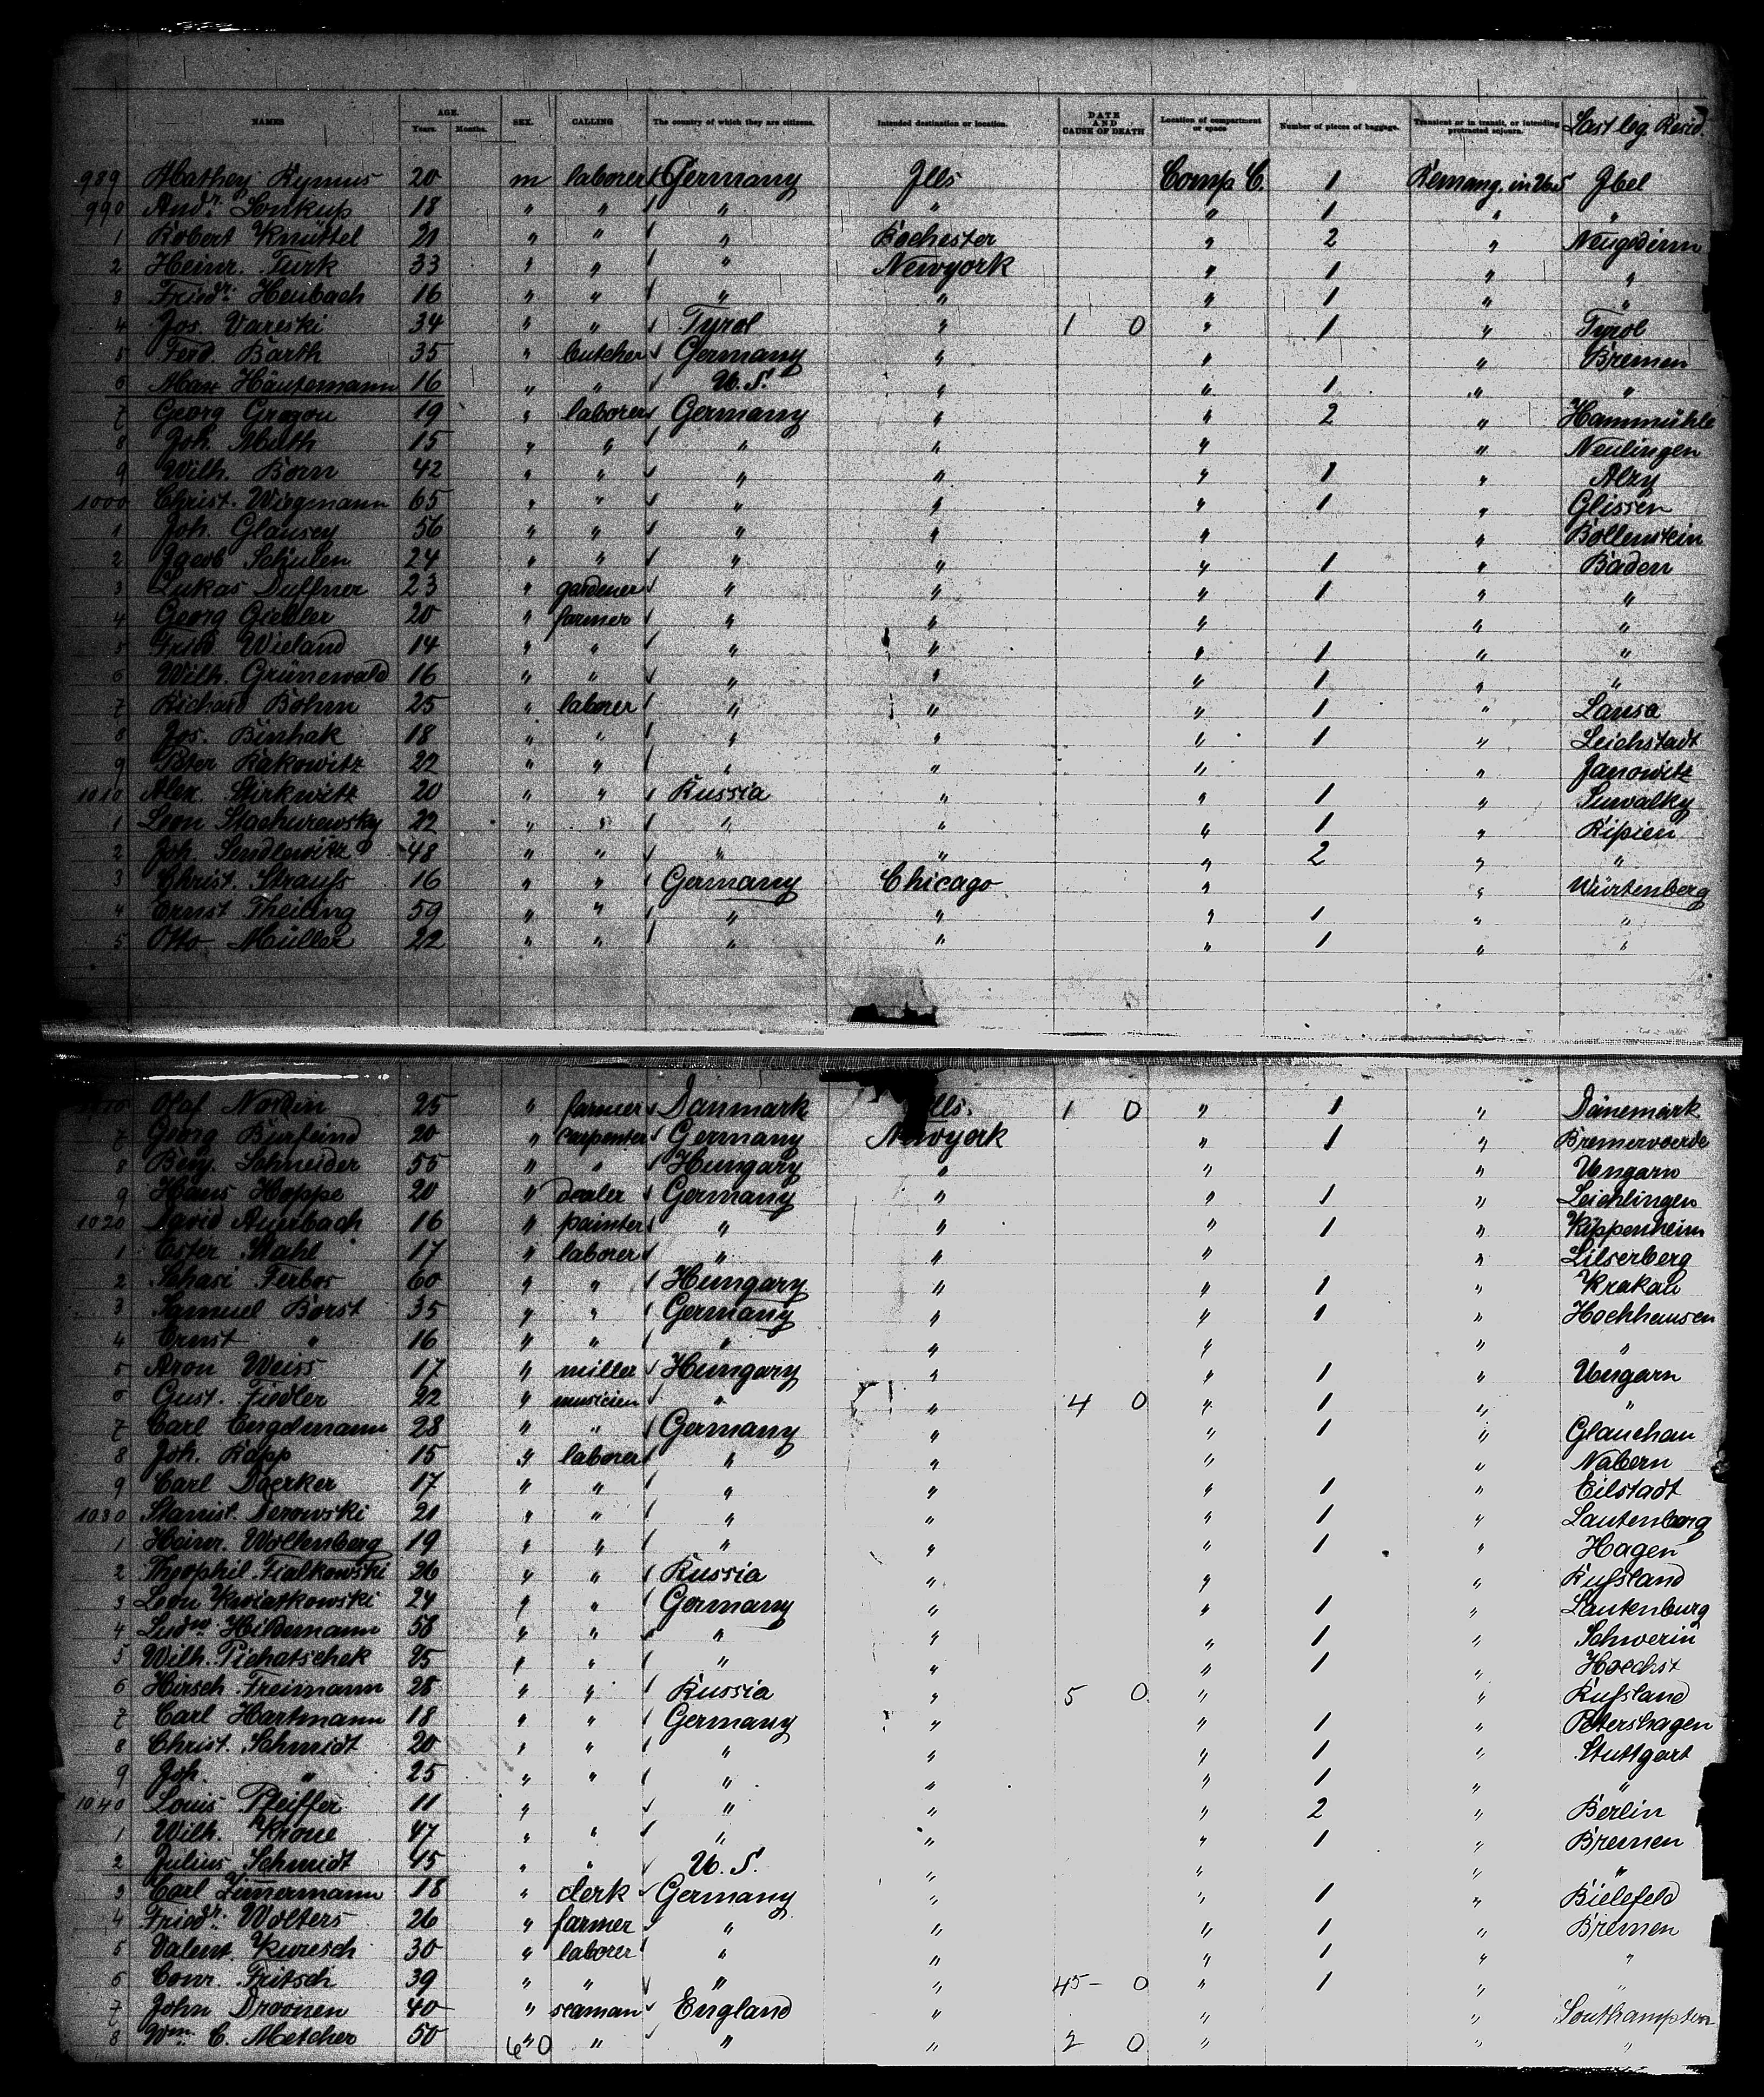 NAMES AGE. Years. Months. SEX. CALLING The country of which they are citizens. Intended destination or location. DATE AND CAUSE OF DEATH Location of compartment or space Number of pieces of baggage. Transient or in transit, or intending protracted sojourn. Last leg. Resid.
989 Mathey Rymus 20 m laborer Germany Ills Comp C. 1 Remang. in U.S Ibel
990 Andr. Soukup 18 " " " " " 1 " "
1 Robert Knüttel 21 " " " Rochester " 2 "
2 Heinr. Turk 33 " " " Newyork " 1 " "
3 Friedr. Heubach 16 " " " " " 1 " "
4 Jos. Vareski 34 " " Tyrol " 1 0 " 1 " Tyrol
5 Ferd. Barth 35 " butcher Germany " " " Bremen
6 Max Häutemann 16 " " U.S. " " 1 " "
7 Georg Gregou 19 " laborer Germany " " 2 " Hammühle
8 Joh. Muth 15 " " " " " " Neulingen
9 Wilh. Born 42 " " " " " 1 " Alzy
1000 Christ. Wiegmann 65 " " " " " 1 " Glissen
1 Joh. Glausey 56 " " " " " " Bollenstein
2 Jacob Schulen 24 " " " " " 1 " Baden
3 Lukas Duffner 23 " gardener " " " 1 " "
4 Georg Giedler 20 " farmer " " " " "
5 Fried. Wieland 14 " " " " " 1 " "
6 Wilh. Grünewald 16 " " " " " 1 " "
7 Richard Böhm 25 " laborer " " " 1 " Lausa
8 Jos. Binhak 18 " " " " " 1 " Leichstadt
9 Peter Rakowitz 22 " " " " " " Janowitz
1010 Alex. Stirkwitz 20 " " Russia " " 1 " Suwalky
1 Leon Stachurewsky 22 " " " " " 1 " Ripien
2 Joh. Sendlewicz 48 " " " " " 2 " "
3 Christ. Straufs 16 " " Germany Chicago " " Würtenberg
4 Ernst Theiling 59 " " " " " 1 " "
5 Otto Müller 22 " " " " " 1 " "
Olaf Nordin 25 " farmer Danmark Ills. 1 0 " 1 " Dänemark
7 Georg Bierfeind 20 " carpenter Germany Newyork " 1 " Bremervoerde
8 Benj. Schneider 55 " " Hungary " " " Ungarn
9 Hans Hoppe 20 " dealer Germany " " 1 " Leichlingen
1020 David Auerbach 16 " painter " " " 1 " Kippenheim
1 Ester Stahl 17 " laborer " " " " Lilserberg
2 Schasi Ferber 60 " " Hungary " " 1 " Krakau
3 Samuel Borst 35 " " Germany " " 1 " Hochhausen
4 Ernst " 16 " " " " " " "
5 Aron Weiss 17 " miller Hungary " " 1 " Ungarn
6 Gust. Fiedler 22 " musicien " " 4 0 " 1 " "
7 Carl Engelmann 28 " " Germany " " 1 " Glauchau
8 Joh. Rapp 15 " laborer " " " " Nabern
9 Carl Daerker 17 " " " " " 1 " Eilstadt
1030 Stanisl. Derowski 21 " " " " " 1 " Lautenberg
1 Heinr. Wollenberg 19 " " " " " 1 " Hagen
2 Theophil Fialkowski 26 " " Russia " " " Rufsland
3 Leon Kwiatkowski 24 " " Germany " " 1 " Lautenburg
4 Ludw. Hildemann 58 " " " " " 1 " Schwerin
5 Wilh. Pichatschek 25 " " " " " 1 " Hoechst
6 Hirsch Freimann 28 " " Russia " 5 0 " " Rufsland
7 Carl Hartmann 18 " " Germany " " 1 " Petershagen
8 Christ. Schmidt 20 " " " " " 1 " Stuttgart
9 Joh. " 25 " " " " " 1 " "
1040 Louis Pfeiffer 11 " " " " 2 " Berlin
1 Wilh. Krone 47 " " " " " 1 " Bremen
2 Julius Schmidt 45 " " U.S. " " " "
3 Carl Zimmermann 18 " clerk Germany " " 1 " Bielefeld
4 Friedr. Wolters 26 " farmer " " " 1 " Bremen
5 Valent. Kuresch 30 " laborer " " " 1 " "
6 Conr. Fritsch 39 " " " " 45- 0 " 1 " "
7 John Droonen 40 " seaman England " " " Southampton
8 Wm. C. Metcher 50 " 60 " " " 2 0 " " "